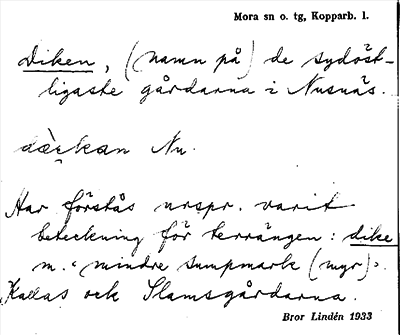 Mora sn o. tg, Kopparb. l.
Diken, (namn på) de sydöst-
ligaste gårdarna i Nusnäs.
Nu.
Har förstås urspr. varit
beteckning för terrängen: dike
m. "mindre sumpmark (myr)".
Kallas ock Slamsgårdarna.
Bror Lindén 1933